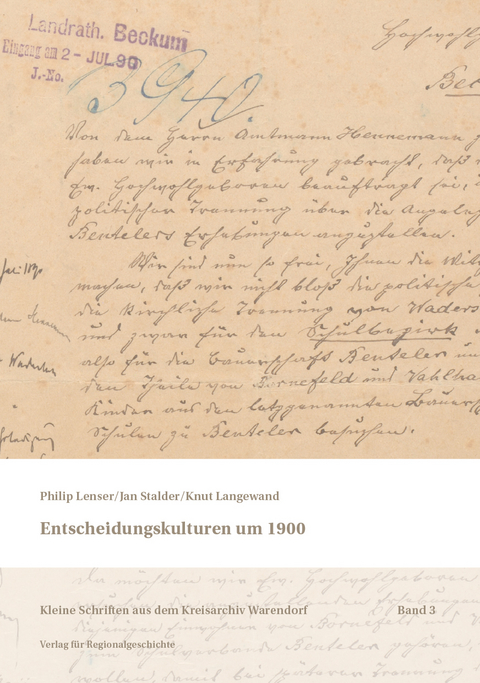 Landrath. Beckum
Eingang am 2 - JUL 90
J.-No.
3940.
Hochwohlg
Bec
Von dem Herrn Amtmann Hennemann
haben wir in Erfahrung gebracht, daß
Ew. Hochwohlgeboren beauftragt sei,
politischer Trennung über die Angeleg
Bentelers Erhebungen anzustellen.
Wir sind nun so frei, Ihnen die Mitt
machen, daß wir nicht bloß die politische
die kirchliche Trennung von Waders
und zwar für den Schulbezirk
also für die Bauerschaft Benteler un
den Theile von Bornefeld und Vahlha
Kinder aus den letztgenannten Bauersch
Schulen zu Benteler besuchen.
Philip Lenser/Jan Stalder/Knut Langewand
Entscheidungskulturen um 1900
Da möchten wir Ew. Hochwohlgeboren
Kleine Schriften aus dem Kreisarchiv Warendorf Band 3
von Bornefeld und
zum Schulverbande Benteler gehören,
Verlag für Regionalgeschichte
wollen, damit bei späterer Trennung